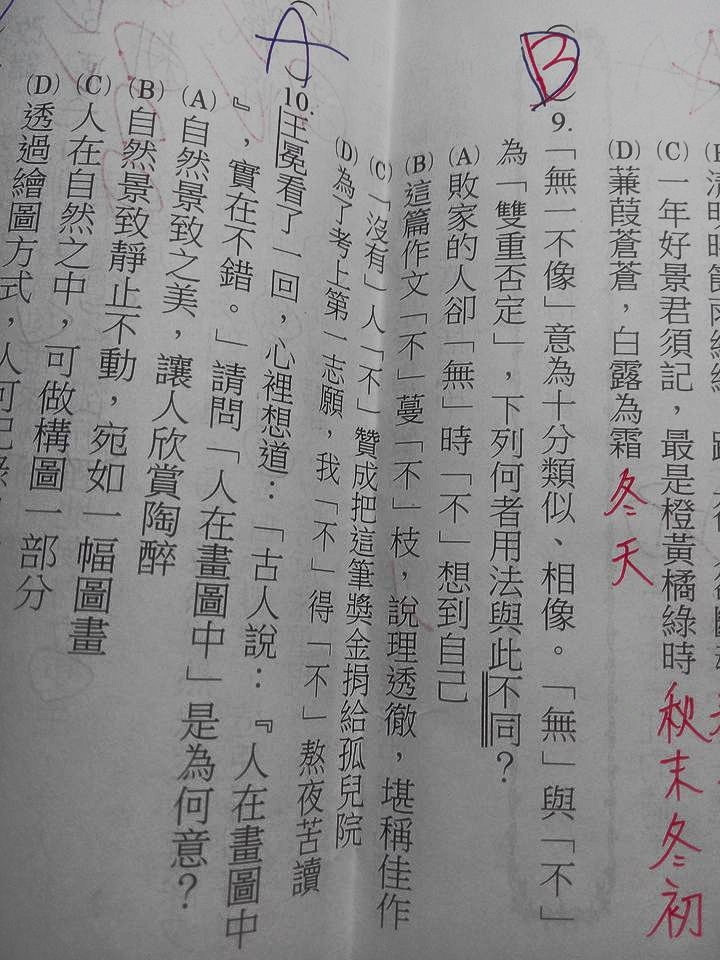 (C)一年好景君須記，最是橙黃橘綠時 秋末冬初
(D)蒹葭蒼蒼，白露為霜 冬天
B
9.「無一不像」意為十分類似、相像。「無」與「不」
為「雙重否定」，下列何者用法與此不同？
(A)敗家的人卻「無」時「不」想到自己
(B)這篇作文「不」蔓「不」枝，說理透徹，堪稱佳作
(C)「沒有」人「不」贊成把這筆獎金捐給孤兒院
(D)為了考上第一志願，我「不」得「不」熬夜苦讀
A
10.王冕看了一回，心裡想道：「古人說：『人在畫圖中
』，實在不錯。」請問「人在畫圖中」是為何意？
(A)自然景致之美，讓人欣賞陶醉
(B)自然景致靜止不動，宛如一幅圖畫
(C)人在自然之中，可做構圖一部分
(D)透過繪圖方式，人可記錄